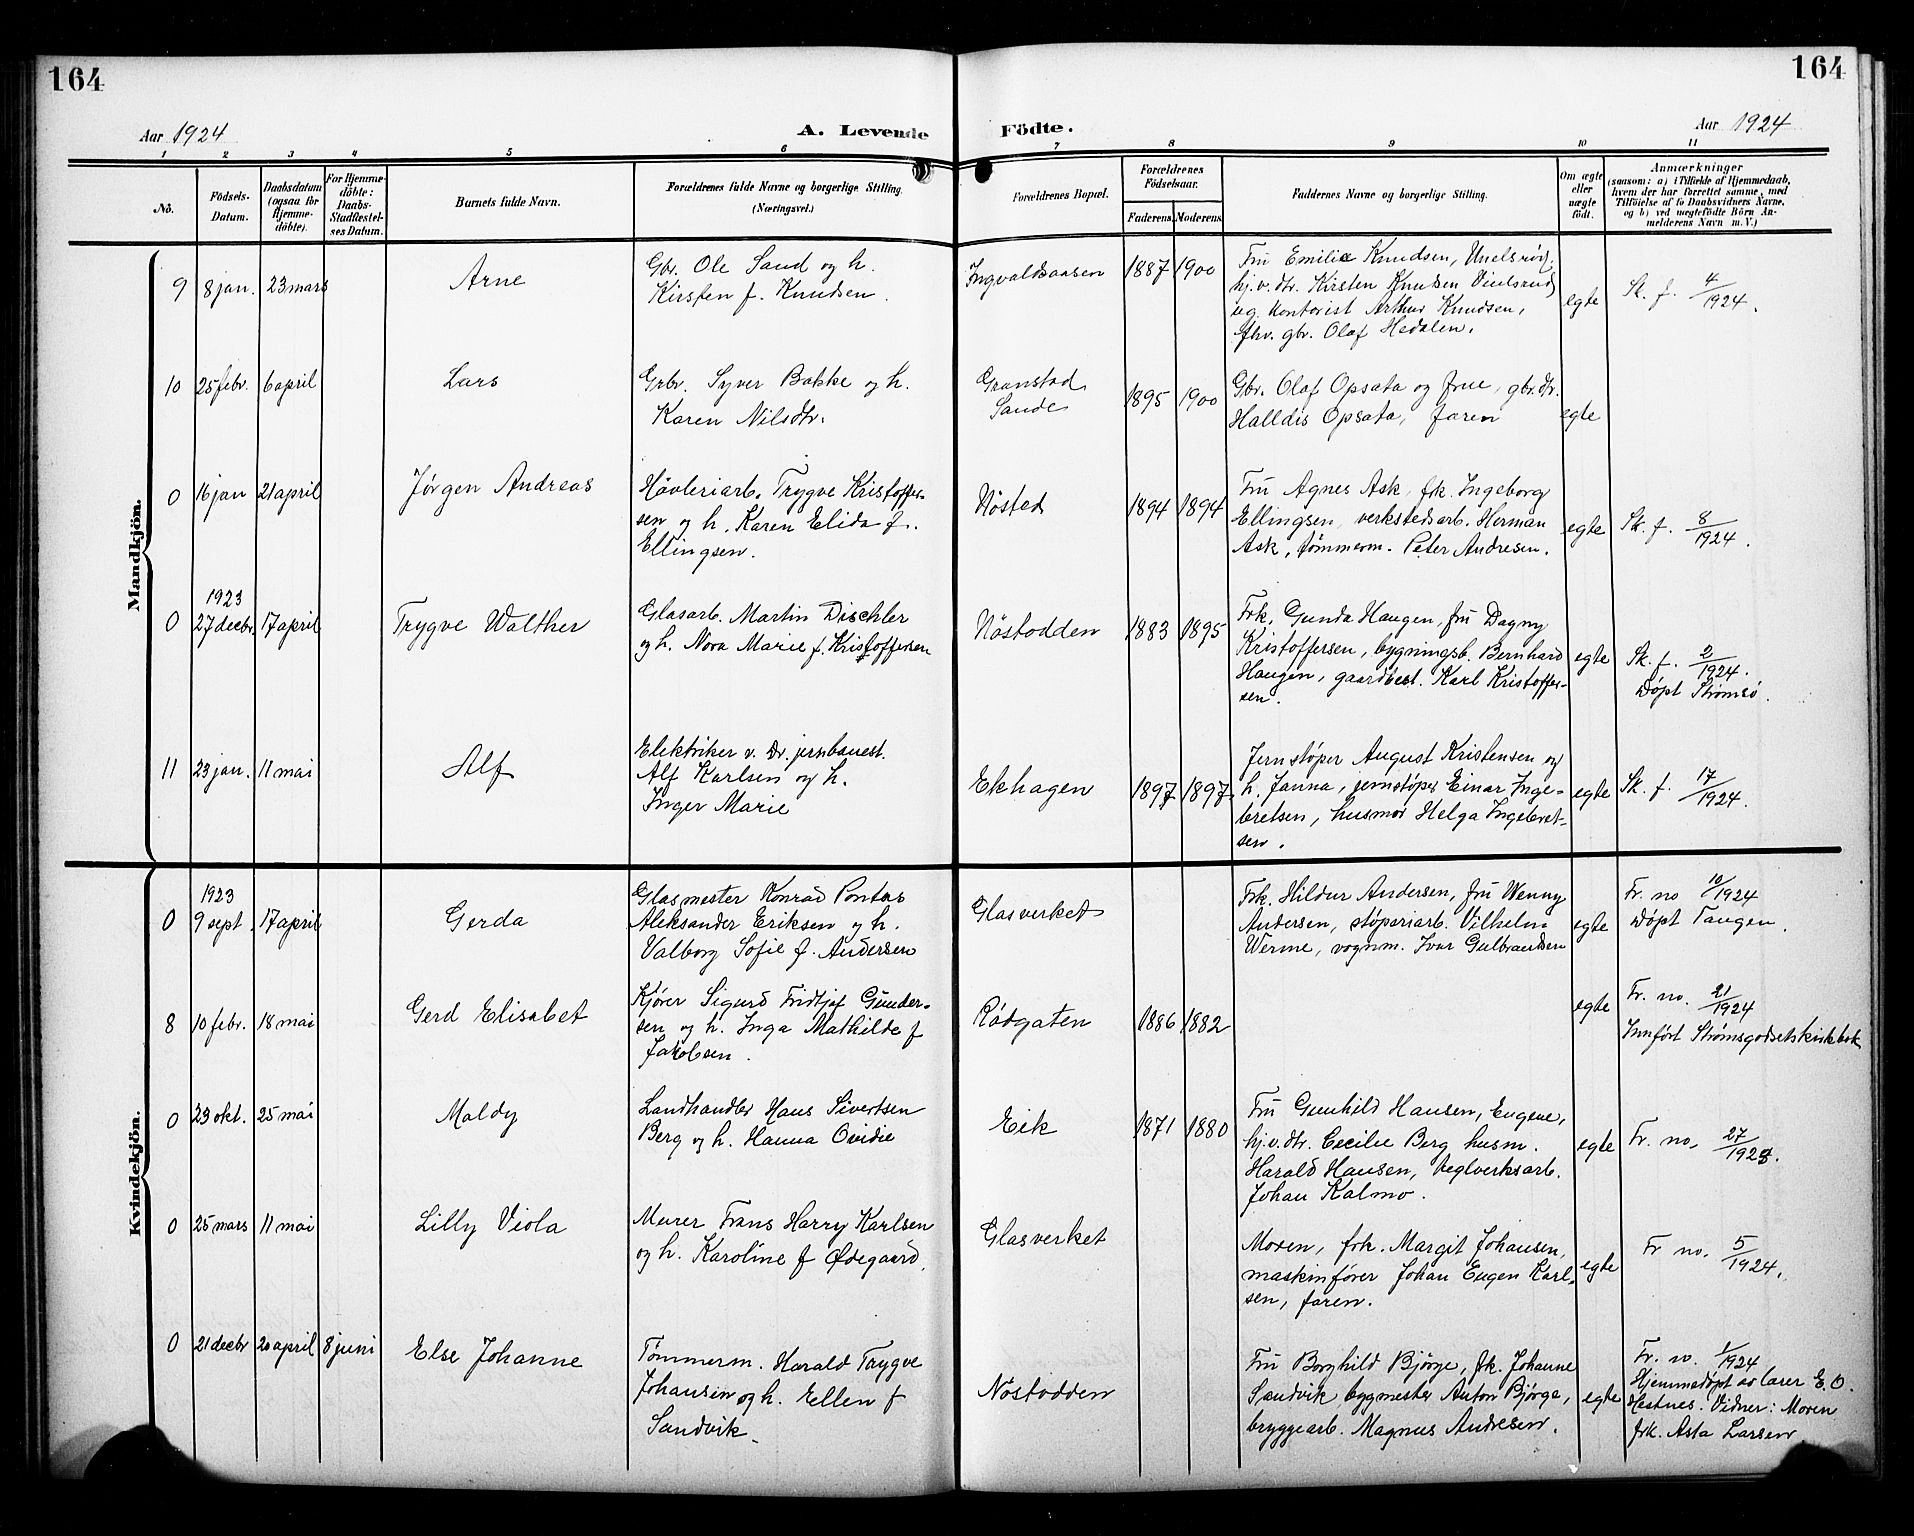 164
164
Aar 1924
A. Levende Födte.
Aar 1924
1 2 3 4 5 6 7 8 9 10 11
No.
Födsels-
Datum.
Daabsdatum
(ogsaa for
Hjemme-
döbte).
For Hjemme-
döbte:
Daabs-
Stadfæstel-
ses Datum.
Barnets fulde Navn.
Forældrenes fulde Navne og borgerlige Stilling.
(Næringsvei.)
Forældrenes Bopæl.
Forældrenes
Födselsaar.
Faderens. Moderens.
Faddernes Navne og borgerlige Stilling.
Om ægte
eller
uægte
födt.
Anmærkninger
(saasom: a) i Tilfælde af Hjemmedaab,
hvem der har forrettet samme, med
Tilföielse af to Daabsvidners Navne,
og b) ved uægtefödte Börn An-
melderens Navn m. V.)
Mandkjön.
9
8 jan.
23 mars
Arne
Gbr. Ole Sand og h.
Kirsten f. Knudsen.
Ingvaldsaasen
1887
1900
Fru Emilie Knudsen,
hj.v.dtr. Kirsten Knudsen
ug. kontorist Arthur Knudsen,
fhv. gbr. Olaf Hedalen.
egte
Sk. f. 4/1924.
10
25 febr.
6 april
Lars
Gbr. Syver Bakke og h.
Karen Nilsdtr.
Granstad
Sande
1895
1900
Gbr. Olaf Opsata og frue, gbr.dtr.
Halldis Opsata, faren
egte
0
16 jan
21 april
Jørgen Andreas
Høvleriarb. Trygve Kristoffer-
sen og h. Karen Elida f.
Ellingsen.
Nøsted
1894
1894
Fru Agnes Ask, frk. Ingeborg
Ellingsen, verkstedsarb. Herman
Ask, tømmerm. Peter Andresen.
egte
Sk. f. 8/1924.
0
1923
27 decbr.
17 april
Trygve Walther
Glasarb. Martin Dischler
og h. Nora Marie f. Kristoffersen
Nøstodden
1883
1895
Frk. Gunda Haugen, fru Dagny
Kristoffersen, bygningsb. Bernhard
Haugen, gaardbest. Karl Kristoffer-
sen.
egte
Sk. f. 2/1924.
Døpt Strømsø.
11
23 jan.
11 mai
Alf
Elektriker v. Dr. jernbanest.
Alf Karlsen og h.
Inger Marie
Ekhagen
1897
1897
Jernstøper August Kristensen og
h. Janna, jernstøper Einar Inge-
bretsen, husmor Helga Ingebret-
sen.
egte
Sk. f. 17/1924.
Kvindekjön.
0
1923
9 sept.
17 april
Gerda
Glasmester Konrad Pontus
Aleksander Eriksen og h.
Valborg Sofie f. Andersen
Glasverket
Frk. Hildur Andersen, fru Wenny
Andersen, støperiarb. Vilhelm
Werme, vognm. Ivar Gulbrandsen
egte
Fr. no 10/1924
Døpt Tangen.
8
10 febr.
18 mai
Gerd Elisabet
Kjører Sigurd Fridtjof Gunder-
sen og h. Inga Mathilde f
Jakobsen.
Rødgaten
1886
1882
egte
Fr. no. 21/1924
Innført Strømsgodsetskirkbok
0
23 okt.
25 mai
Maldy
Landhandler Hans Sivertsen
Berg og h. Hanna Ovidie
Eik
1871
1880
Fru Gunhild Hansen, Eugene,
hj.v.dtr. Cecilie Berg husm.
Harald Hansen, teglverksarb.
Johan Kalmo.
egte
Fr. no. 27/1923.
0
25 mars
11 mai
Lilly Viola
Murer Frans Harry Karlsen
og h. Karoline f Ødegaard.
Glasverket
Moren, frk. Margit Johansen,
maskinfører Johan Eugen Karl-
sen, faren.
egte
Fr no. 5/1924.
0
21 decbr
20 april
8 juni
Else Johanne
Tømmerm. Harald Trygve
Johansen og h. Ellen f
Sandvik.
Nøstodden
Fru Borghild Bjørge, frk. Johanne
Sandvik, bygmester Anton Bjørge,
bryggearb. Magnus Andresen.
egte
Fr. no. 1/1924
Hjemmedøpt av lærer E. O.
Hestnes. Vidner: Moren
frk. Asta Larsen